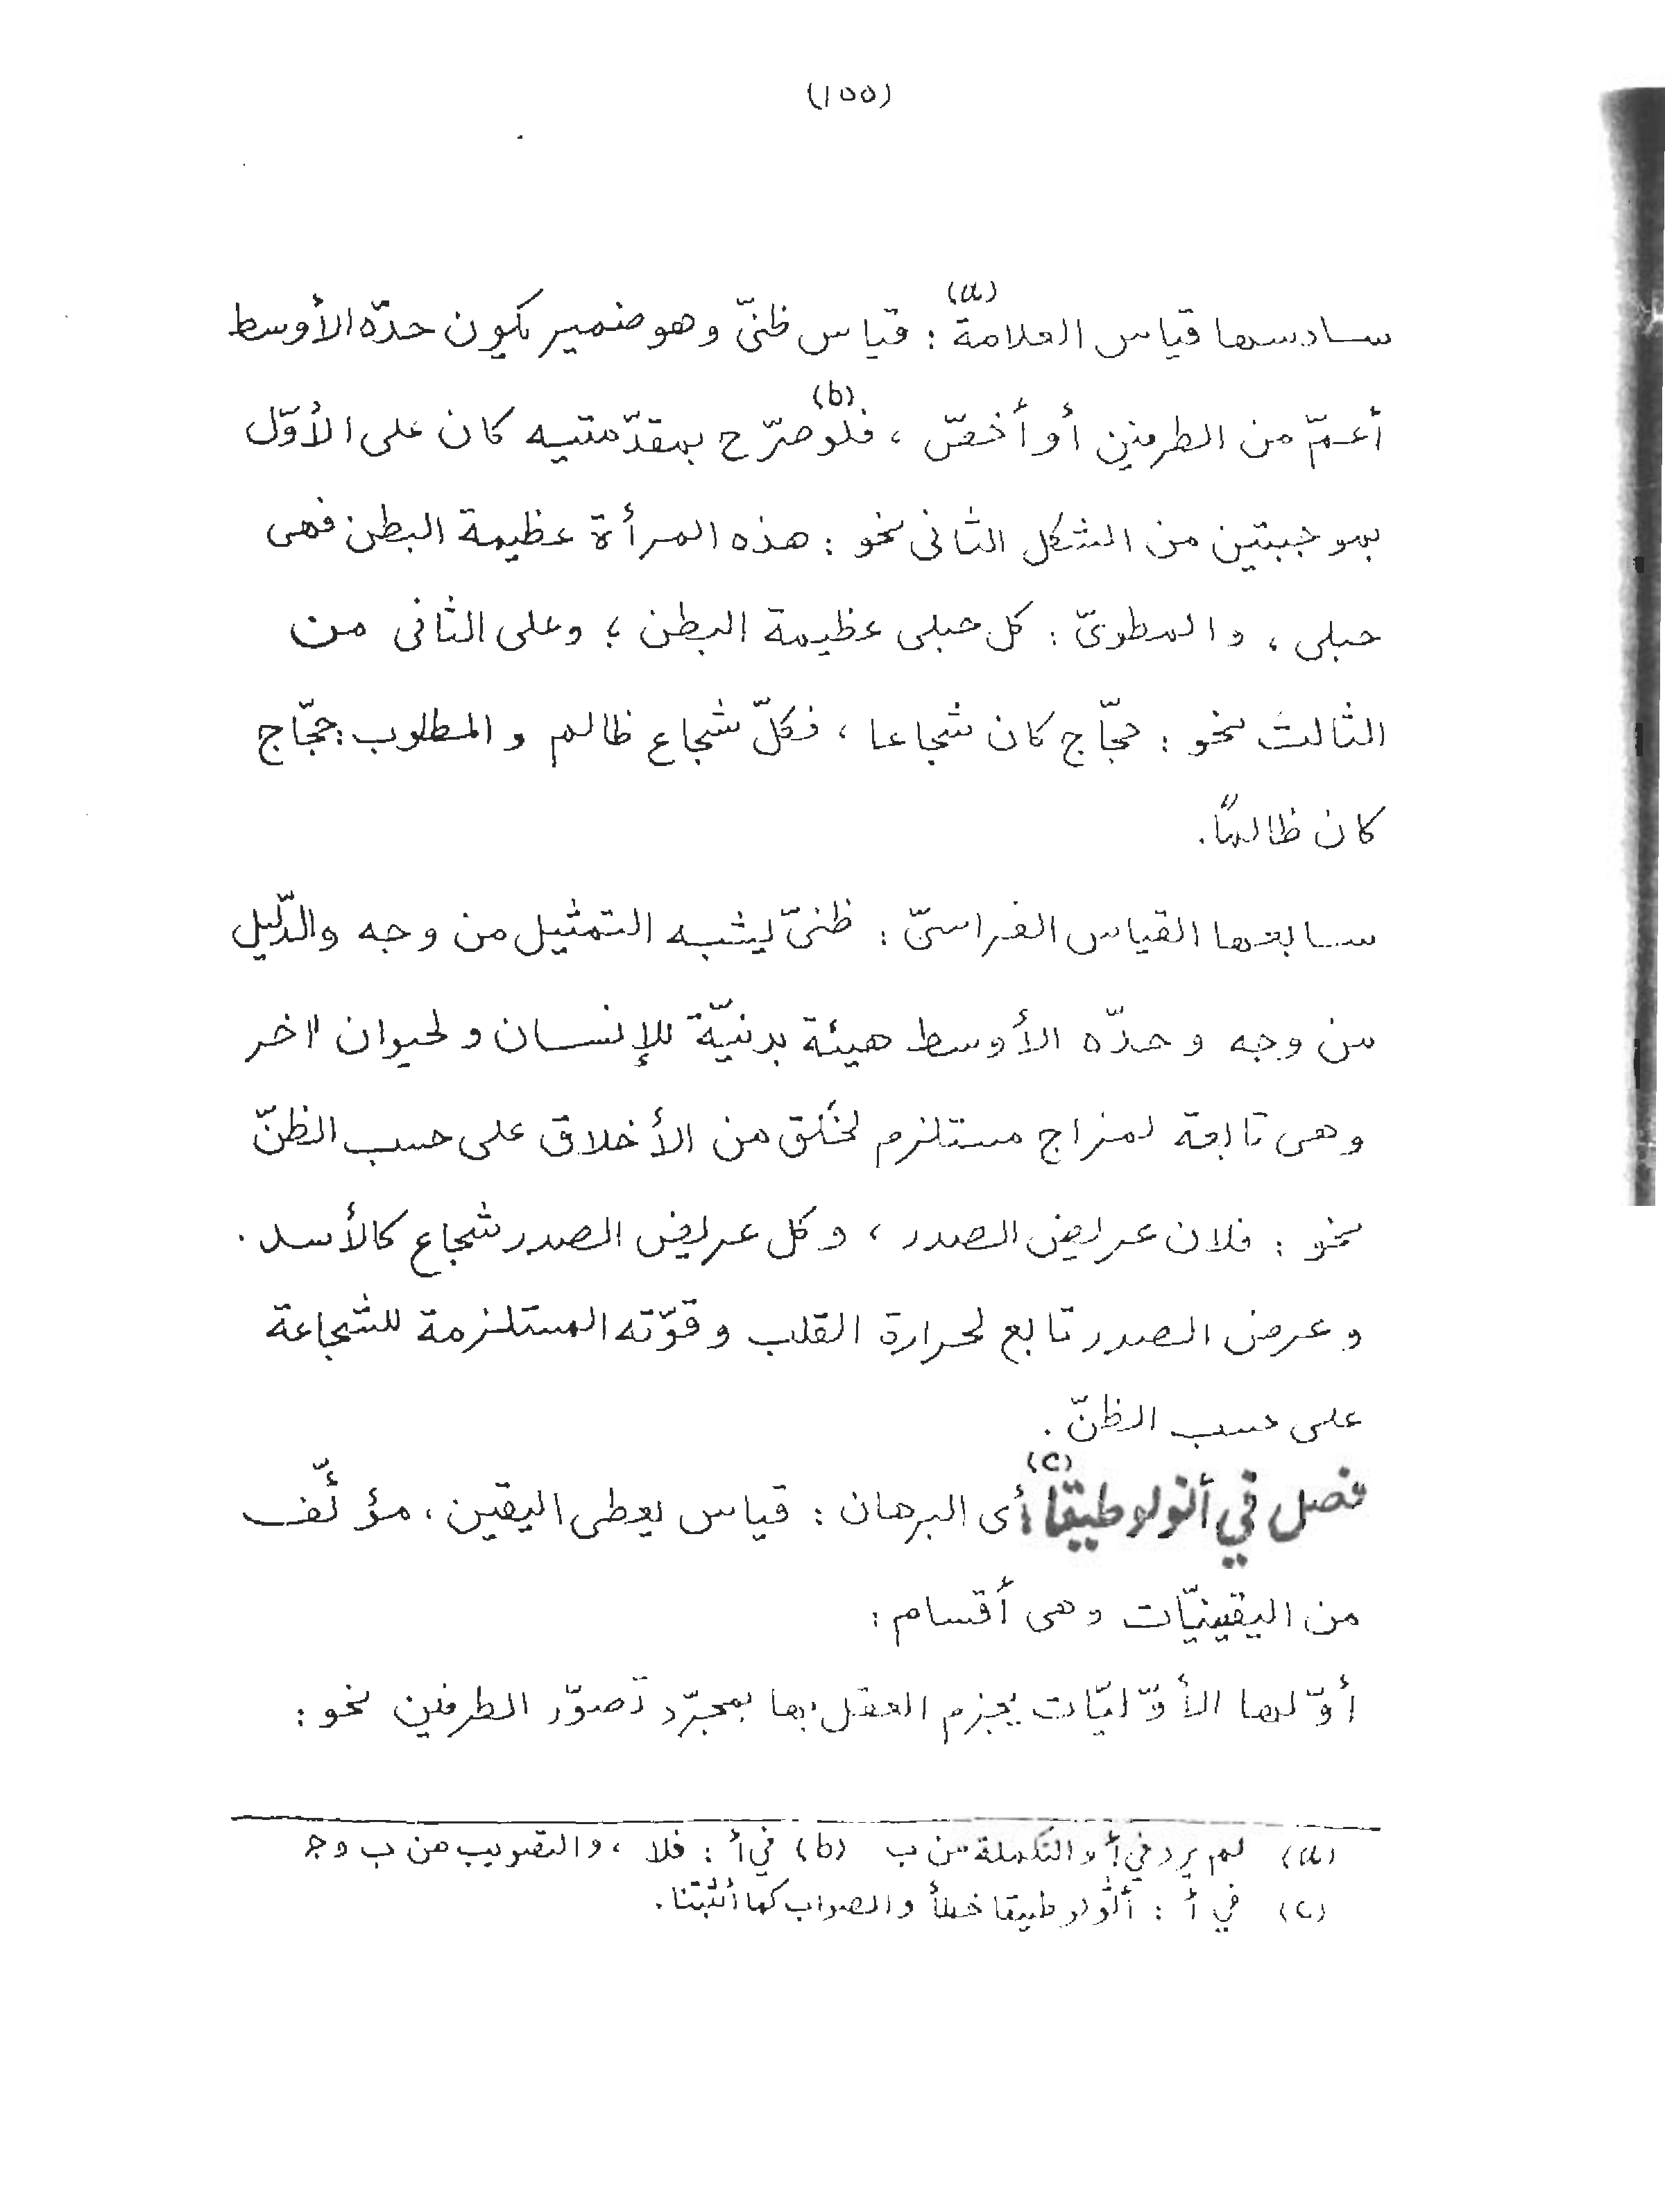 (١٥٥)
سادسها قياس العلامة(a) : قياس ظنىّ وهو ضمير يكون حدّه الأوسط
أعمّ من الطرفين أو أخصّ ، فلو(b) صرّح بمقدّمتيه كان على الأوّل
بموجبتين من الشكل الثانى نحو : هذه المرأة عظيمة البطن فهى
حبلى ، والمطوىّ : كل حبلى عظيمة البطن ؛ وعلى الثانى من
الثالث نحو : حجّاج كان شجاعا ، فكلّ شجاع ظالم والمطلوب : حجّاج
كان ظالمًا.
سابعها القياس الفراسىّ : ظنىّ يشبه التمثيل من وجه والدّليل
من وجه وحدّه الأوسط هيئة بدنيّة للإنسان ولحيوان اٰخر
وهى تابعة لمزاج مستلزم لخُلق من الأخلاق على حسب الظنّ
نحو : فلان عريض الصدر ، وكل عريض الصدر شجاع كالأسد .
وعرض الصدر تابع لحرارة القلب وقوّته المستلزمة للشجاعة
على حسب الظنّ .
فصل في أنولوطيقا(c) أى البرهان : قياس يعطى اليقين ، مؤلّف
من اليقينيّات وهى أقسام :
أوّلها الأوّليّات يجزم العقل بها بمجرّد تصوّر الطرفين نحو :
(a) لم يرد في أ والتكملة من ب (b) في أ : فلا ، والتصويب من ب وج
(c) في أ : أثولوطيقا خطأ والصواب كما أثبتنا .